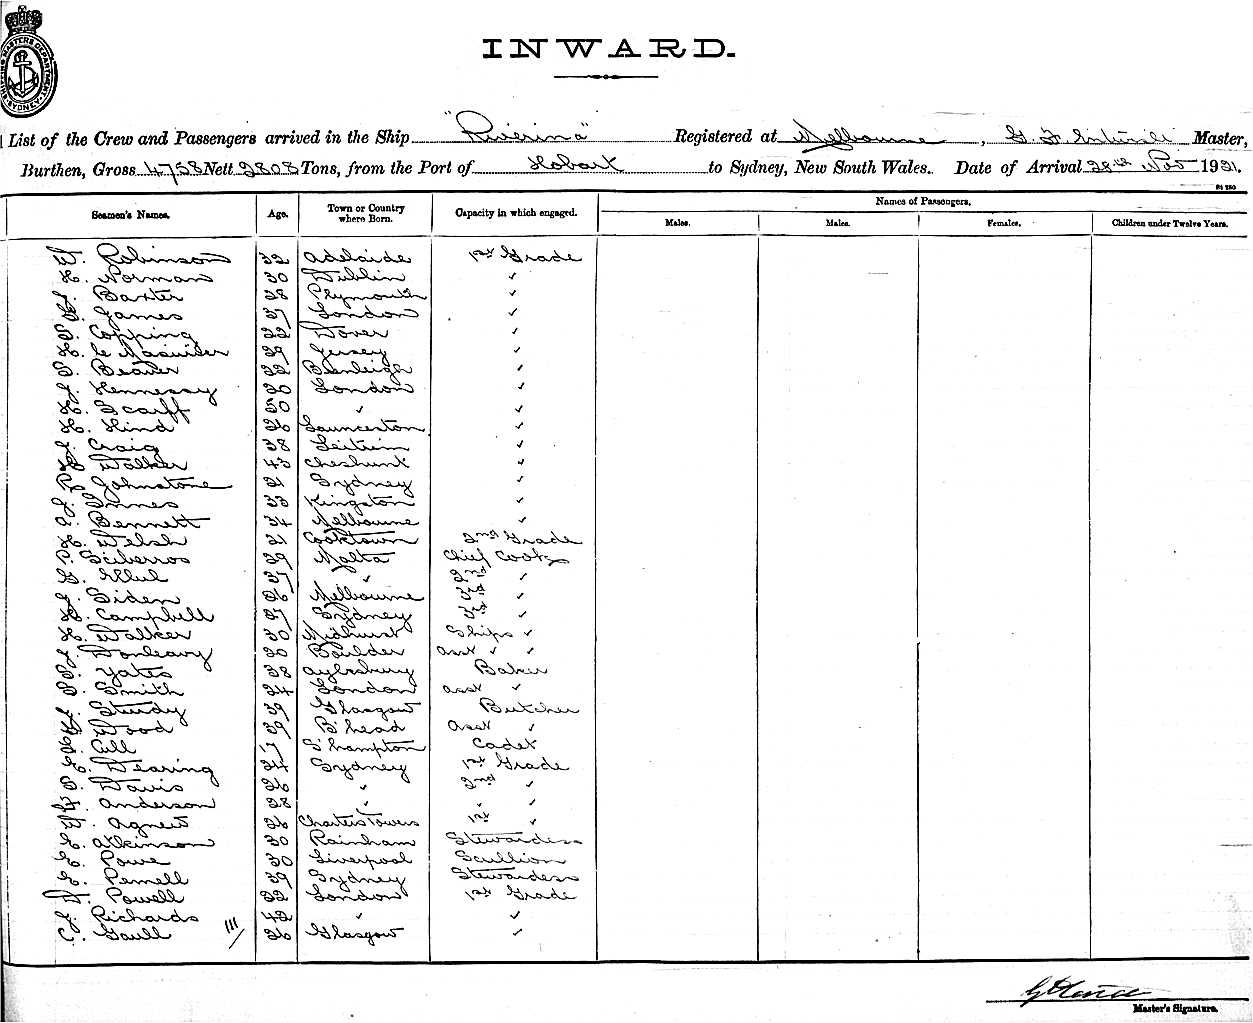 SHIPPING MASTERS DEPARTMENT SYDNEY
INWARD.
List of the Crew and Passengers arrived in the Ship "Riverina" Registered at Melbourne, Master,
Burthen, Gross 4758 Nett 2808 Tons, from the Port of Hobart to Sydney, New South Wales. Date of Arrival 28th Nov 1921.
Seamen's Names. Age. Town or Country where Born. Capacity in which engaged. Names of Passengers.
Males. Males. Females. Children under Twelve Years.
W. Robinson 32 Adelaide 1st Grade
H. Norman 30 Dublin "
J. Baxter 28 Plymouth "
James 37 London "
Copping 22 Dover "
H. le Masurier 39 Jersey "
Beaver 22 Beenleigh "
J. Hennessy 30 London "
H. Scarff 50 " "
H. Hind 26 Launceston "
J. Craig 38 Leitrim "
Walker 43 Cheshunt "
Johnstone 21 Sydney "
J. Innes 33 Kingston "
Bennett 34 Melbourne "
H. Welsh 21 Cooktown 2nd Grade
P. Sciberros 39 Malta Chief Cook
G. Ellul 37 " 2nd "
J. Siden 26 Melbourne 3rd "
Campbell 27 Sydney 3rd "
H. Walker 30 Midhurst Ships "
J. Dunleavy 30 Boulder asst " "
Yates 38 Aylesbury Baker
Smith 24 London asst "
J. Sturdy 39 Glasgow Butcher
Wood 39 B'head Asst "
Cull 17 S'hampton Cadet
E. Dearing 24 Sydney 1st Grade
Davis 26 " 2nd "
Anderson 28 " " "
W. Agnew 26 Charters Towers 1st "
E. Atkinson 30 Rainham Stewardess
E. Powe 30 Liverpool Scullion
E. Pennell 39 Sydney Stewardess
Powell 22 London 1st Grade
J. Richards 42 " "
C. Gaull 36 Glasgow "
Master's Signature.